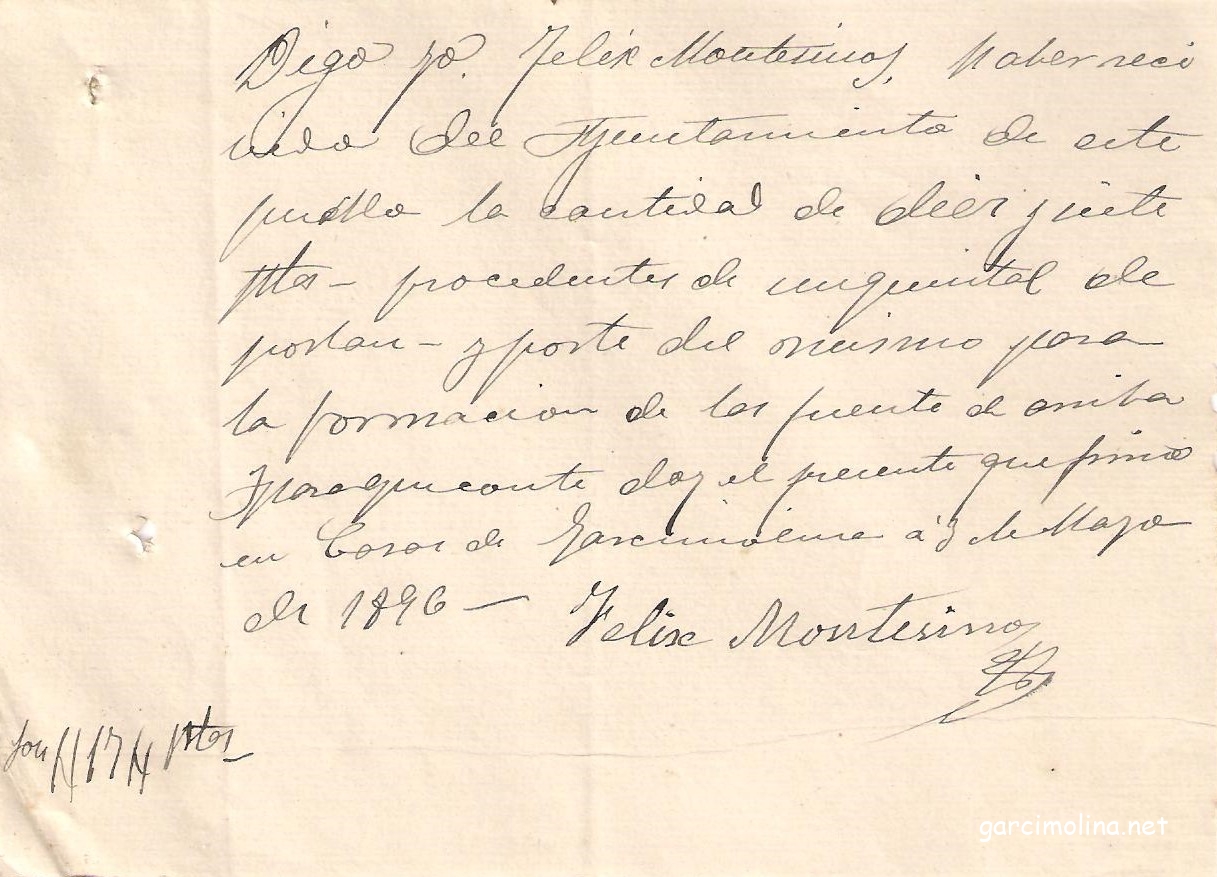 Digo yo. Felix Montesinos, haber reci
vido del Ayuntamiento de este
pueblo la cantidad de diez y siete
ptas - procedentes de un quintal de
porlan - y porte del mismo para
la formacion de las fuente de arriba
Y para que conste doy el presente que firmo
en Casas de Garcimolina á 3 de Mayo
de 1896 —
Felix Montesinos
Son // 17 // Ptas
garcimolina.net